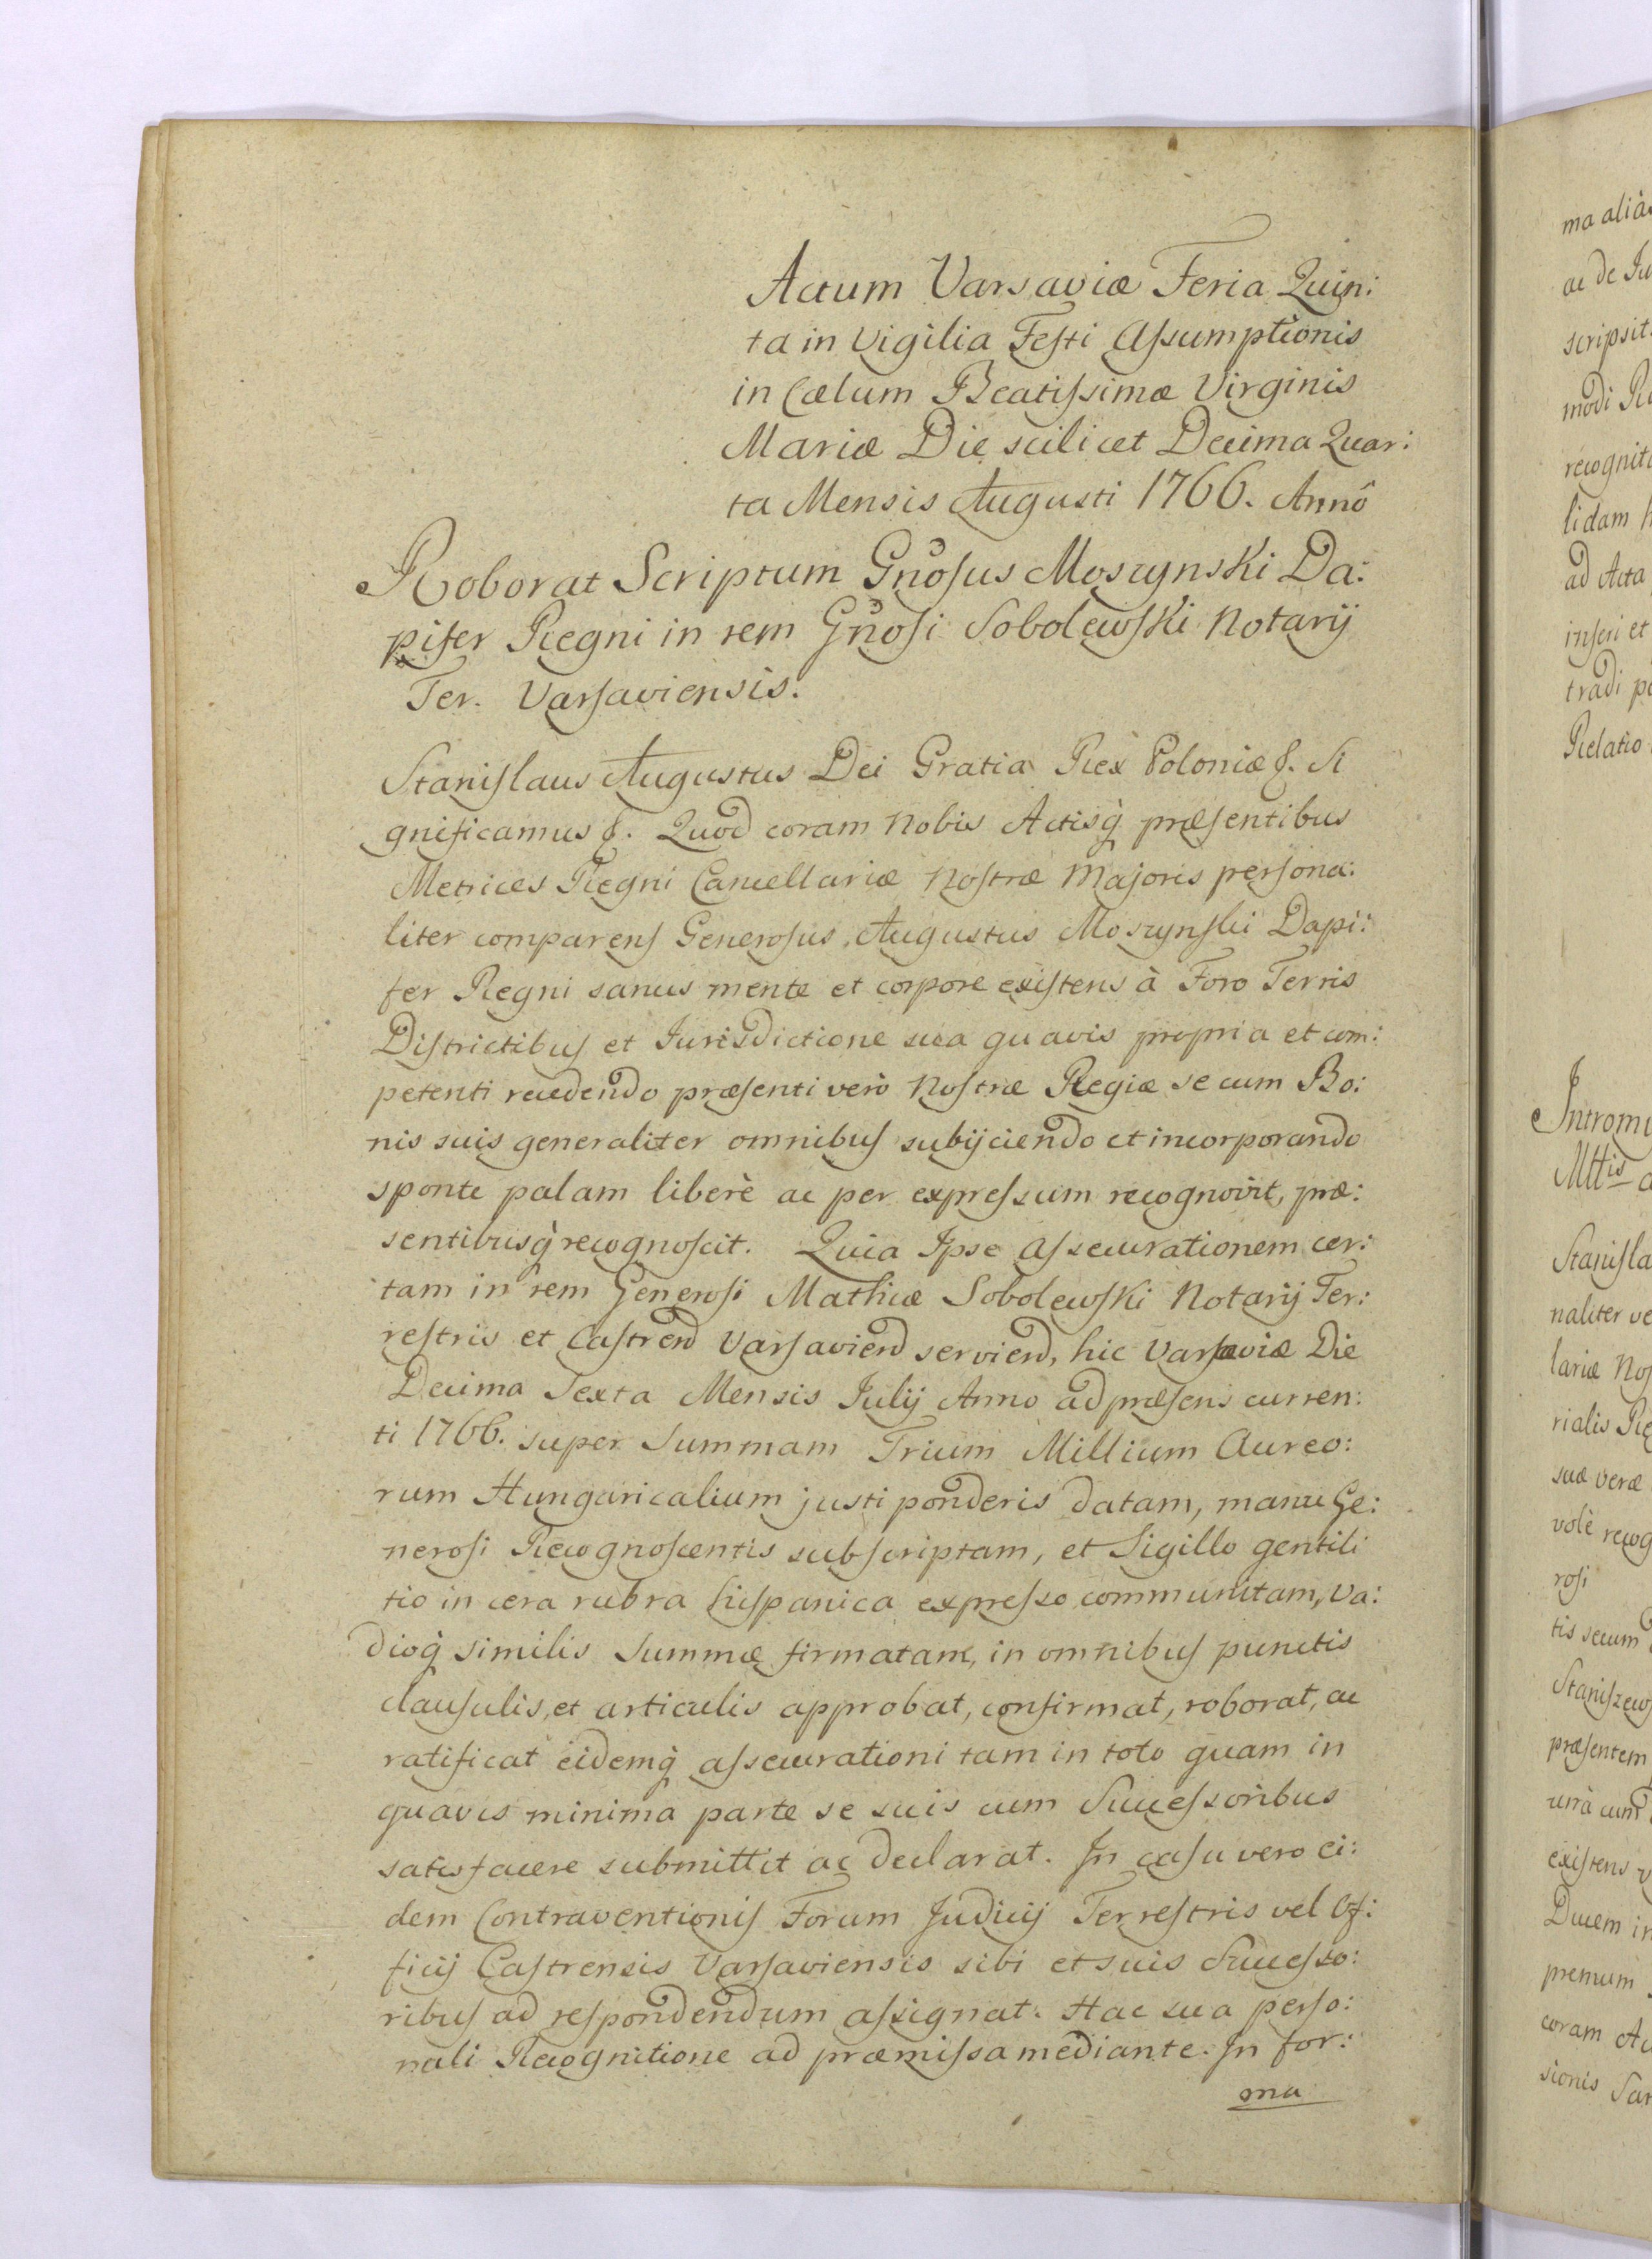 Actum Varsaviæ Feria Quin:
ta in Vigilia Festi Assumptionis
in Cælum Beatissimæ Virginis
Mariæ Die scilicet Decima Quar:
ta Mensis Augusti 1766. Annô
Roborat Scriptum Gnosus Moszynski Da:
pifer Regni in rem Gnosi Sobolewski Notarij
Ter. Varsaviensis.
Stanislaus Augustus Dei Gratia Rex Poloniæ &. Si
gnificamus &. Quod coram Nobis Actisq̀ præsentibus
Metrices Regni Cancellariæ Nostræ Majoris persona:
liter comparens Generosus Augustus Moszynski Dapi:
fer Regni sanus mente et corpore existens à Foro Terris
Districtibus et Iurisdictione sua quavis propria et com:
petenti recedendo præsenti verò Nostræ Regiæ se cum Bo:
nis suis generaliter omnibus subijciendo et incorporando
sponte palam liberè ac per expressum recognovit, præ:
sentibusq̀ recognoscit. Quia Ipse Assecurationem cer:
tam in rem Generosi Mathiæ Sobolewski Notarij Ter:
restris et Castren Varsavien servien, hic Varsaviæ Die
Decima Sexta Mensis Julij Anno ad præsens curren:
ti 1766. super Summam Trium Millium Aureo:
rum Hungaricalium justi ponderis datam, manu Ge:
nerosi Recognoscentis subscriptam, et Sigillo gentili
tio in cera rubra hispanica expresso communitam, Va:
dioq̀ similis Summæ firmatam, in omnibus punctis
clausulis, et articulis approbat, confirmat, roborat, ac
ratificat eidemq̀ assecurationi tam in toto quam in
quavis minima parte se suis cum Successoribus
satisfacere submittit ac declarat. In casu vero ei:
dem Contraventionis Forum Judicij Terrestris vel Of:
ficij Castrensis Varsaviensis sibi et suis Successo:
ribus ad respondendum assignat. Hac sua perso:
nali Recognitione ad præmissa mediante. In for:
ma
ma aliàs
ac de Iu
scripsit.
modi Re
recognita
lidam h
ad Acta
inseri et
tradi pe
Relatio
Intromi
Mttis a
Stanisla
naliter ve
lariæ Nos
rialis Re
suæ veræ
volè recog
rosi
tis secum
Staniszews
præsentem
unà cum
existens
Ducem in
premum
coram Ac
sionis Sar